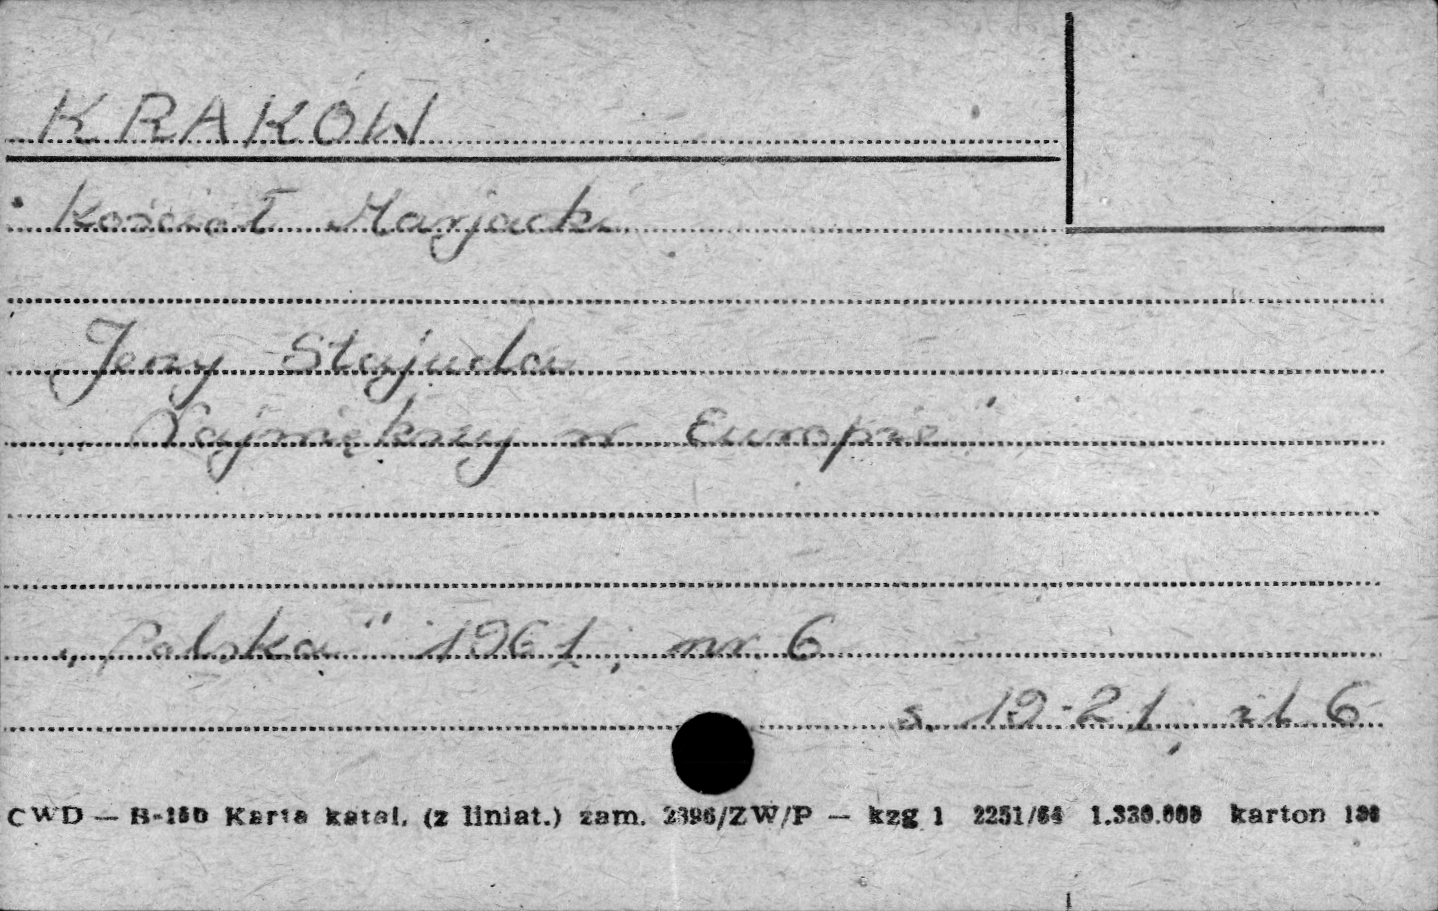 KRAKÓW
Kościół Marjacki
Jerzy Stajuda
„Najpiękniejszy w Europie"
„Polska" 1961, nr 6
s. 19-21, il 6
CWD — B-150 Karta katal. (z liniat.) zam. 2396/ZW/P — kzg 1 2251/64 1.330.000 karton